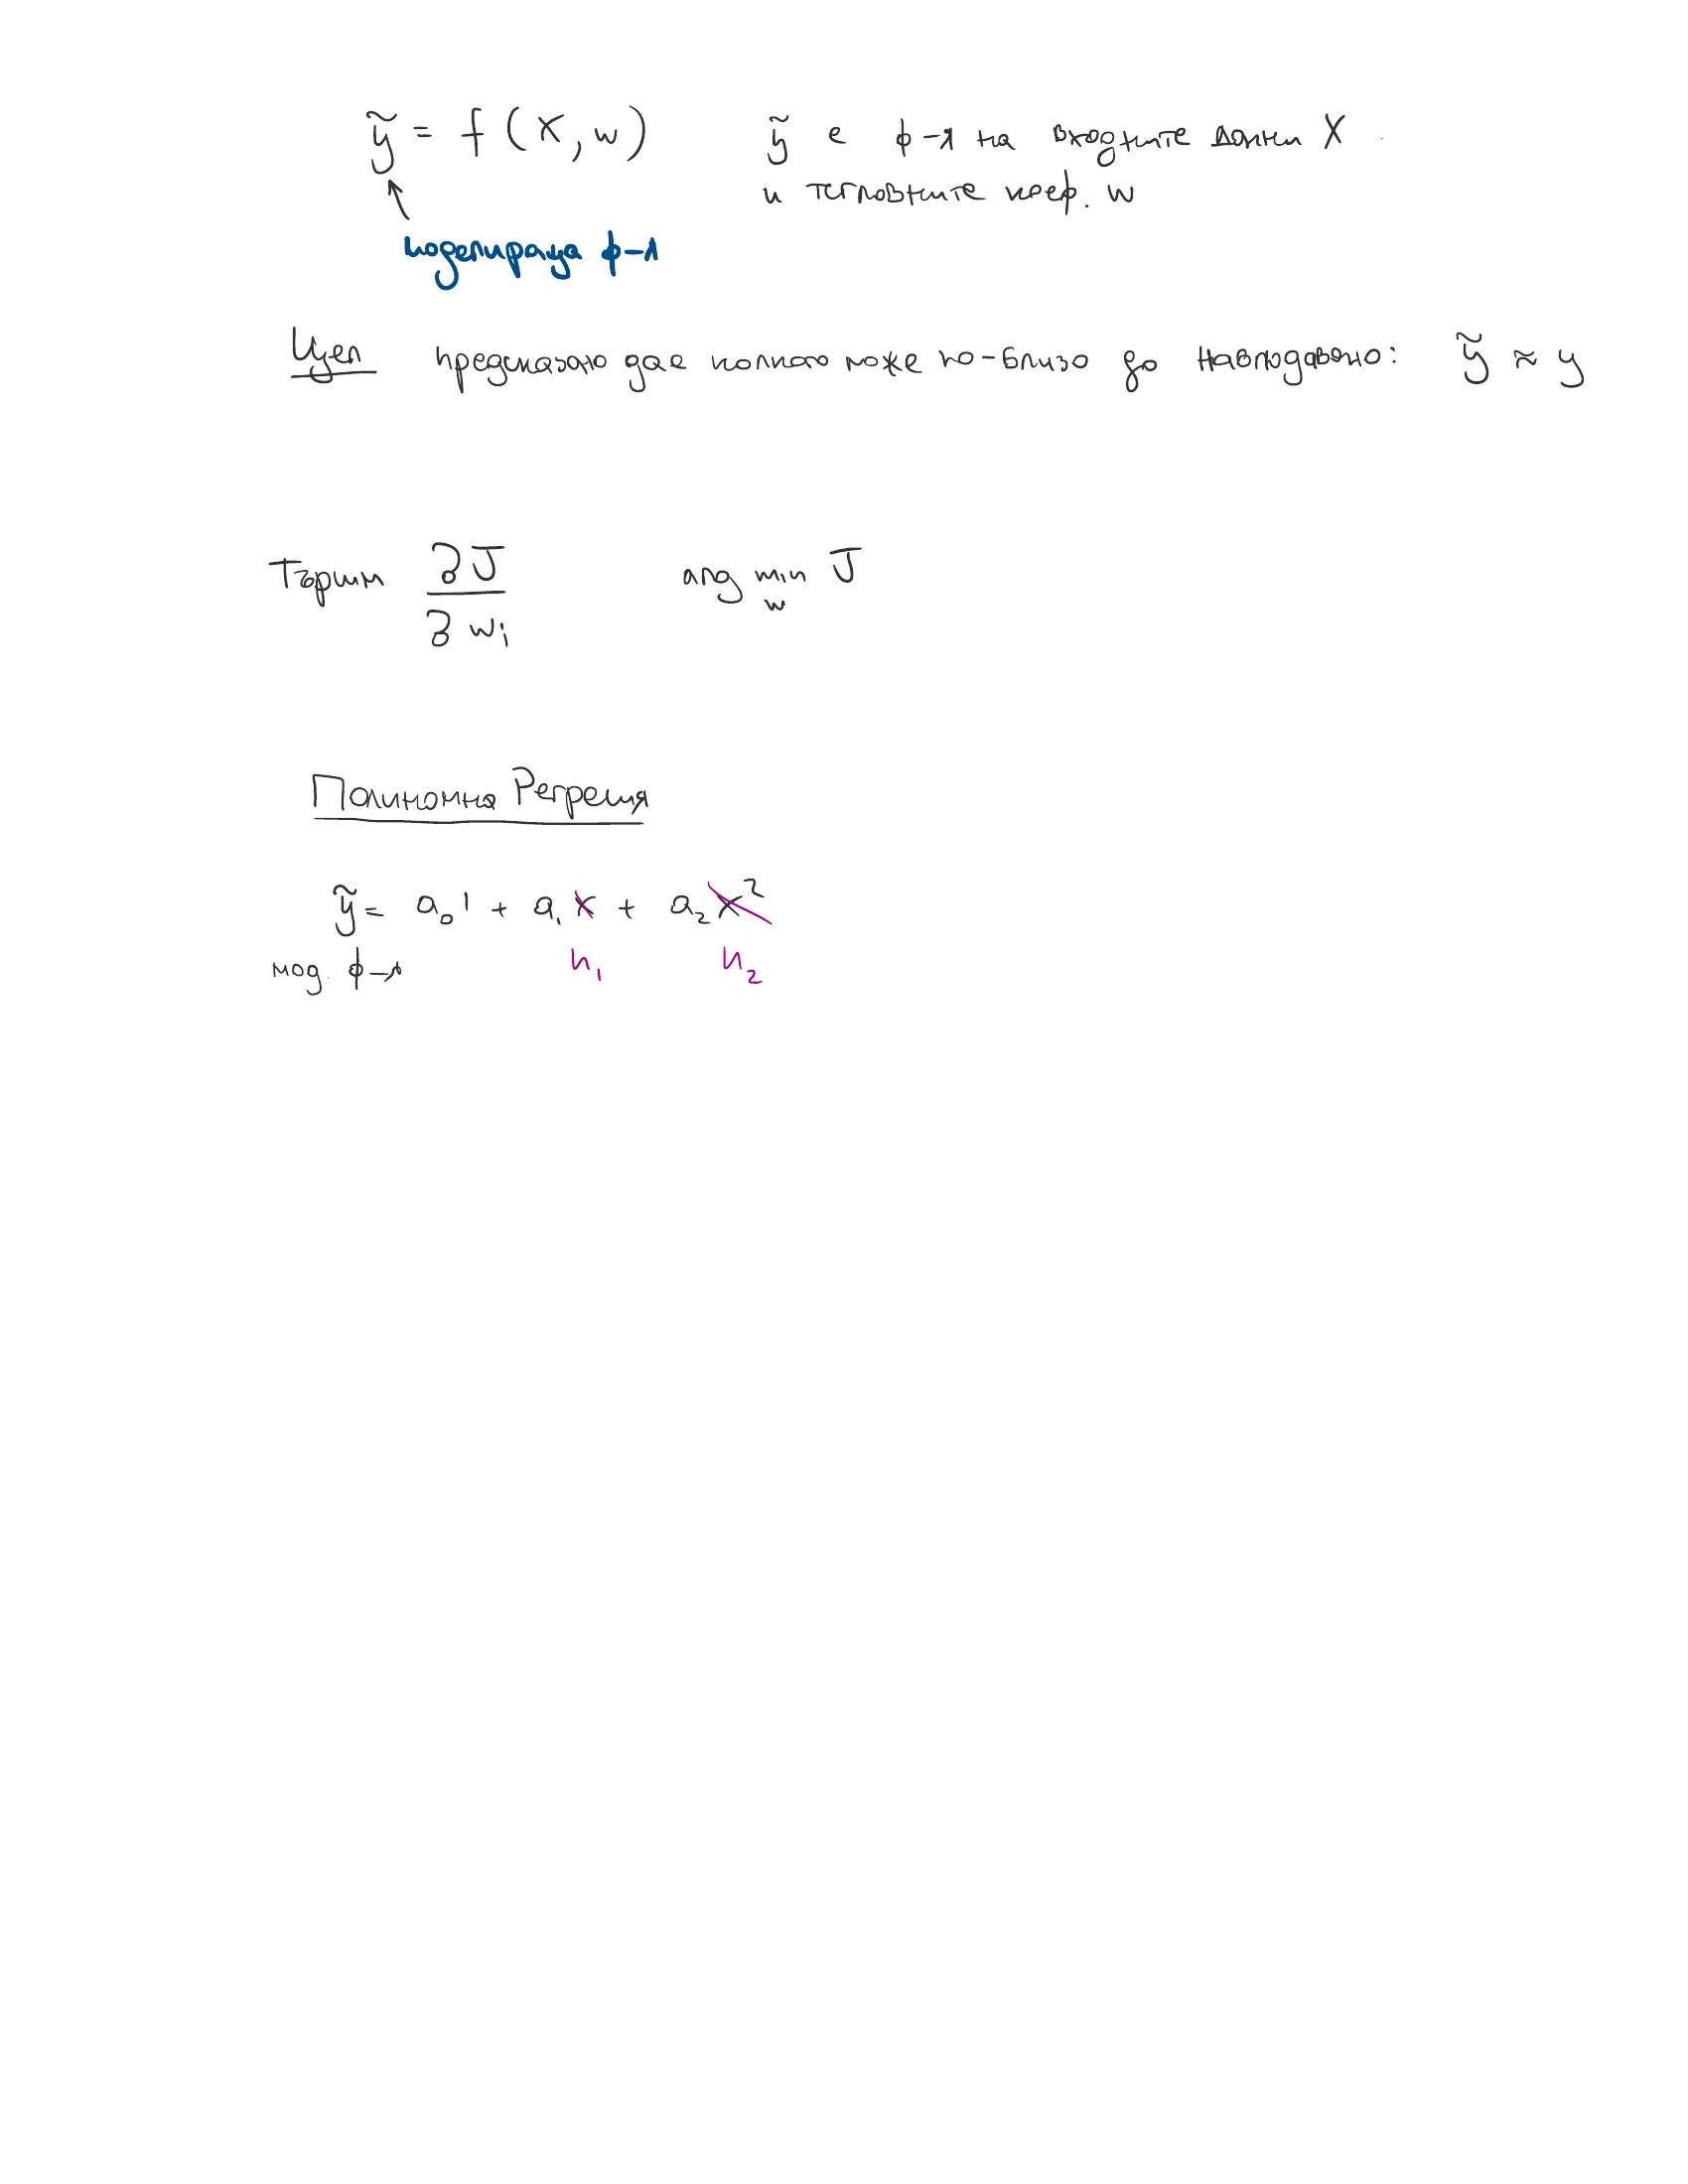 ỹ = f(x, w) ỹ е ф-я на входните данни X
и тегловните коеф. w
моделираща ф-я
Цел предсказано да е колкото може по-близо до наблюдавано: ỹ ≈ y
Търсим ∂J / ∂wᵢ arg min_w J
Полиномна Регресия
ỹ = a₀1 + a₁x + a₂x²
мод. ф-я h₁ h₂